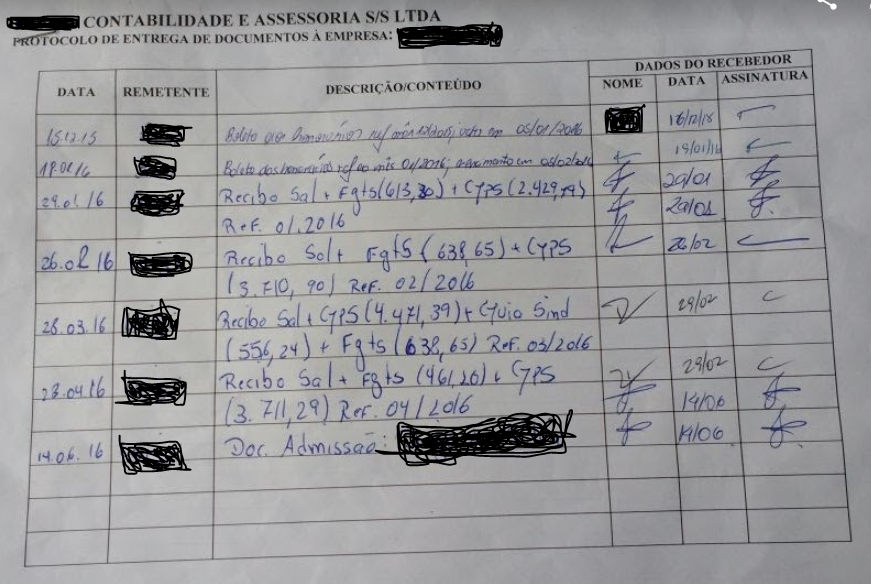 CONTABILIDADE E ASSESSORIA S/S LTDA
PROTOCOLO DE ENTREGA DE DOCUMENTOS À EMPRESA:
DADOS DO RECEBEDOR
DATA REMETENTE DESCRIÇÃO/CONTEÚDO NOME DATA ASSINATURA
15.12.15 Boleto em 05/01/2016 16/12/15
Boleto dos honorários ref ao mês 01/2016; vencimento em 05/02/2016
29.01.16 Recibo Sal + Fgts (613,30) + GPS (2.429,79) 29/01
Ref. 01.2016 29/01
26.02 16 Recibo Sal + FgtS (638,65) + GPS 26/02
(3.710,90) Ref. 02/2016
28.03.16 Recibo Sal + GPS (4.471,39) + Guia Sind 29/02
(556,24) + Fgts (638,65) Ref. 03/2016
28.04.16 Recibo Sal + Fgts (461,20) + GPS 29/02
(3.711,29) Ref. 04/2016 14/06
14.06.16 Doc. Admissão: 14/06